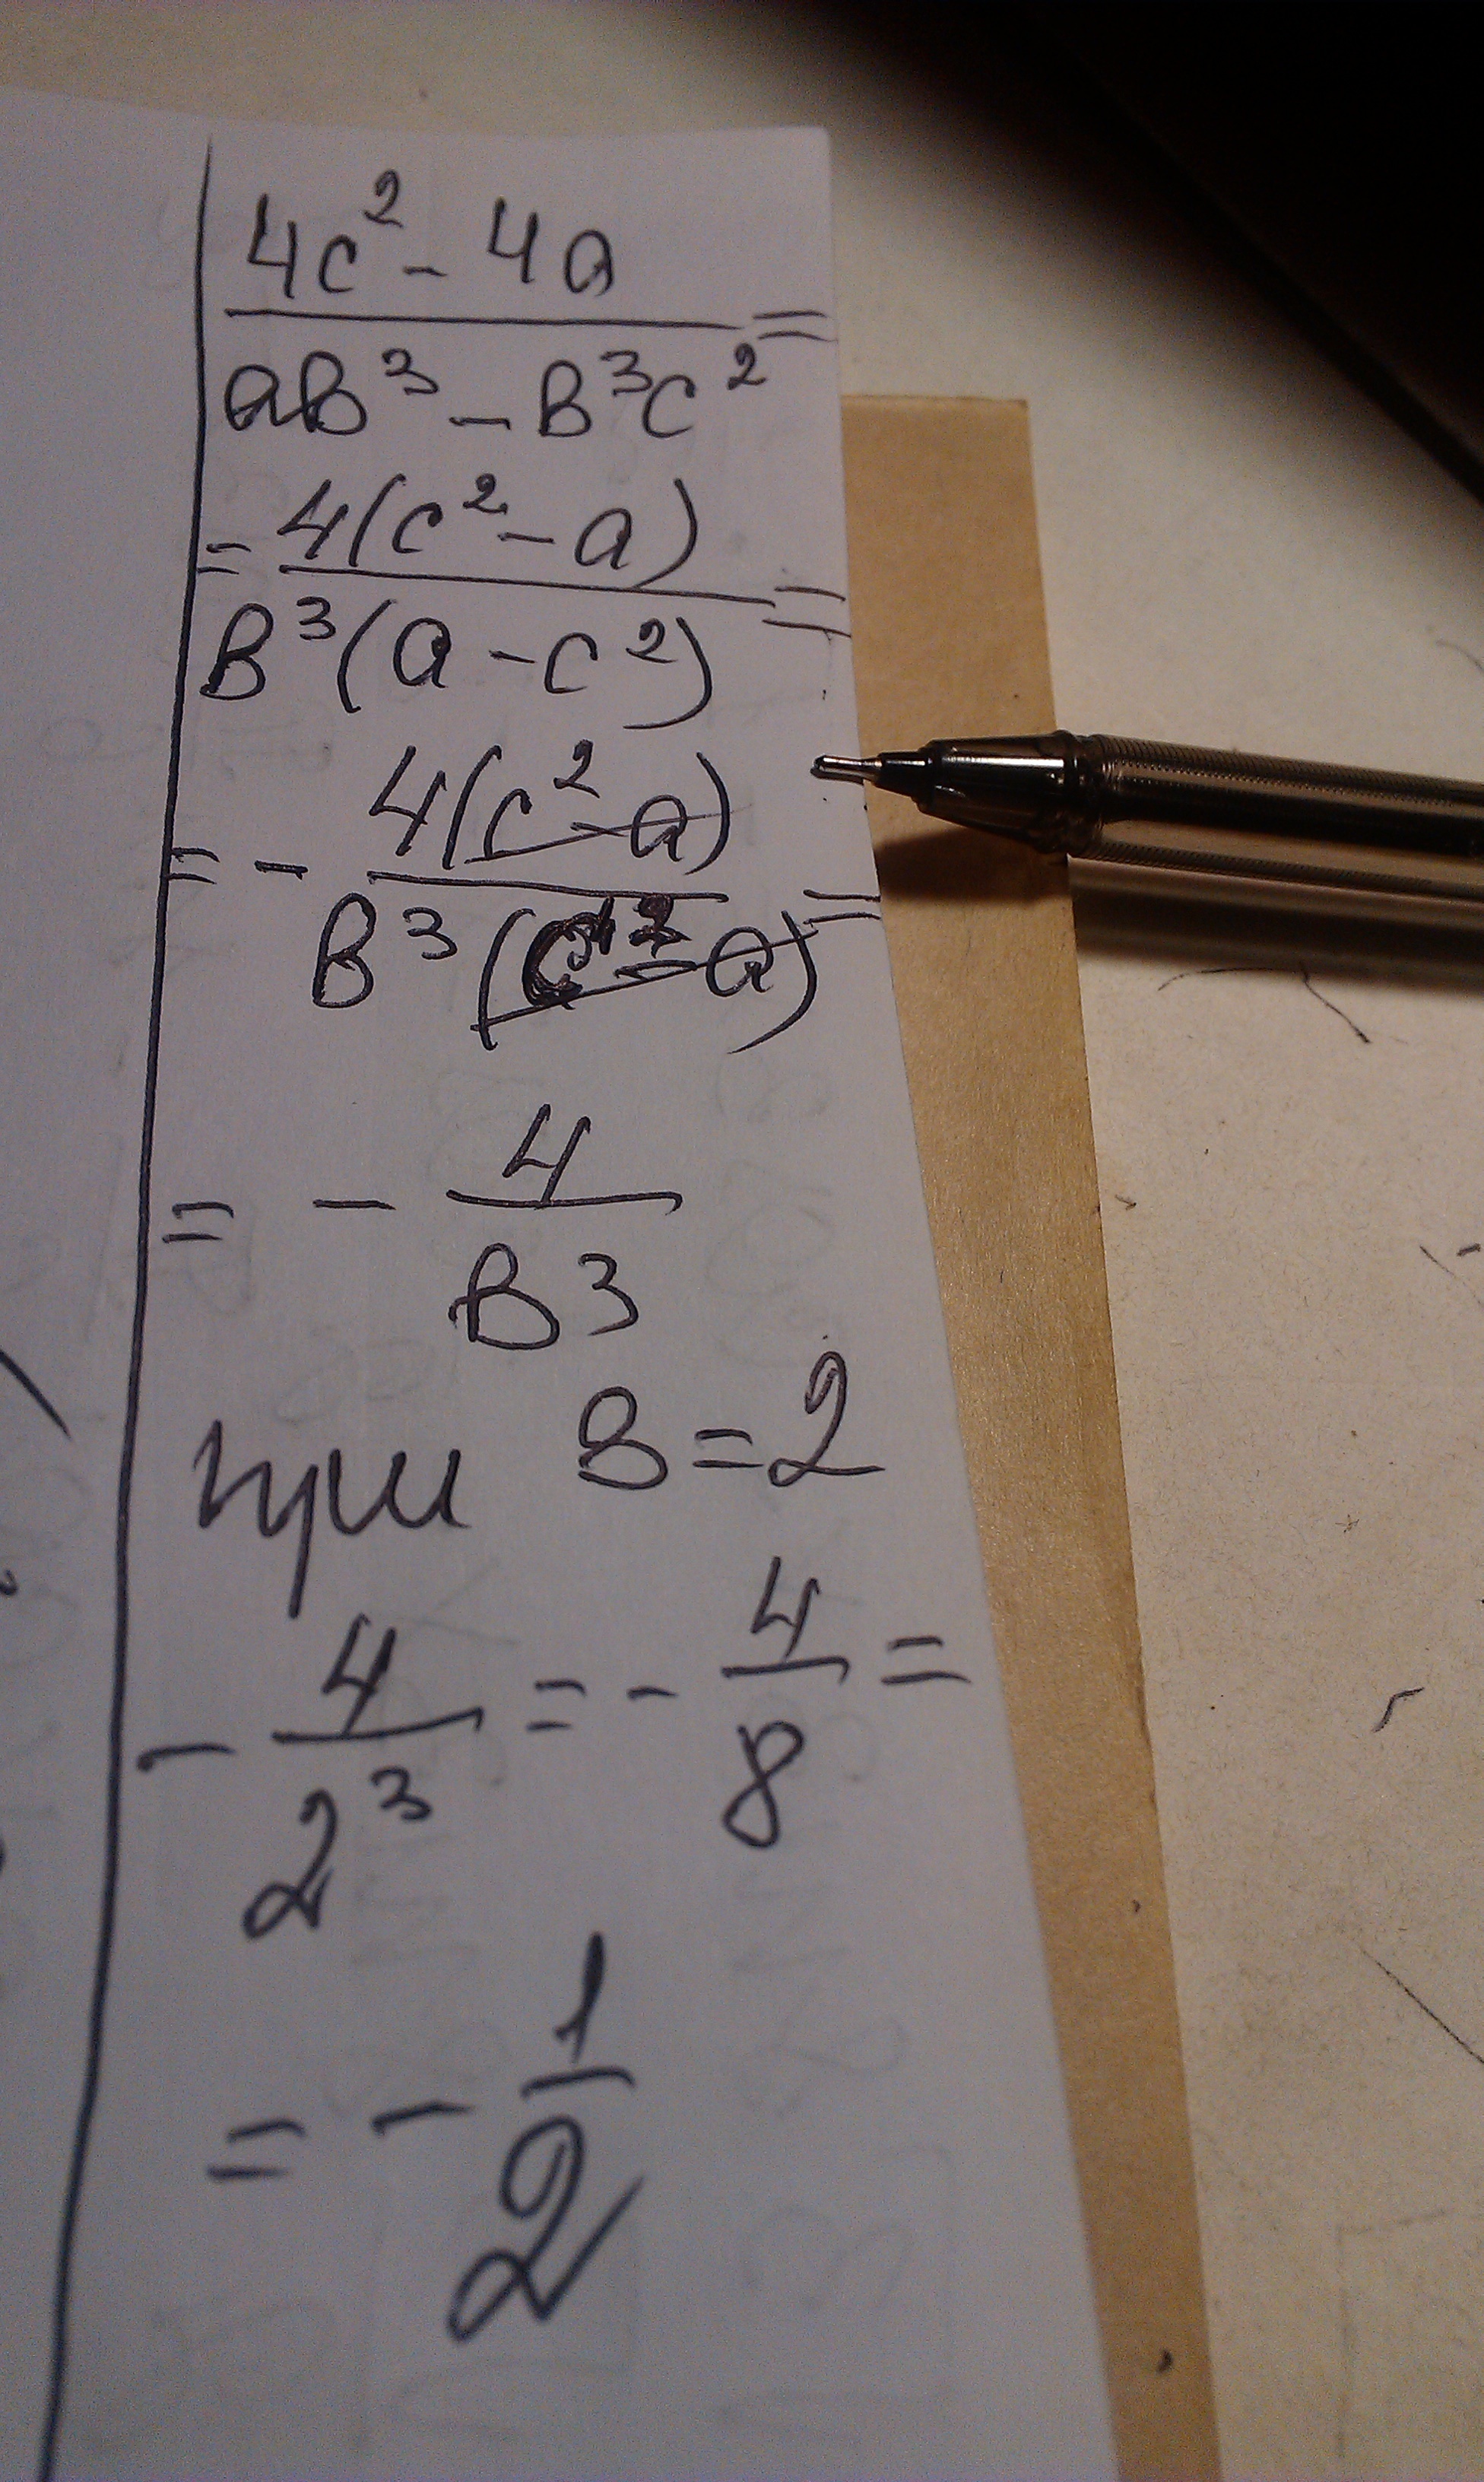 4c² - 4a
aв³ - в³c² =
= 4(c² - a)
в³(a - c²) =
= - 4(c² - a)
в³(c² - a) =
= - 4
в³
при в = 2
- 4 = - 4 =
2³ 8
= - 1
2